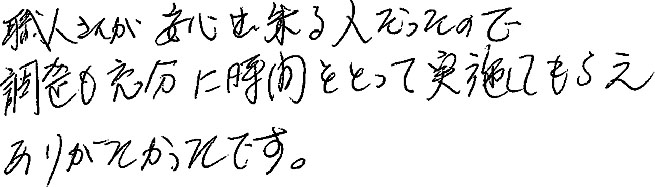 職人さんが安心出来る人だったので
調整も充分に時間をとって実施してもらえ
ありがたかったです。